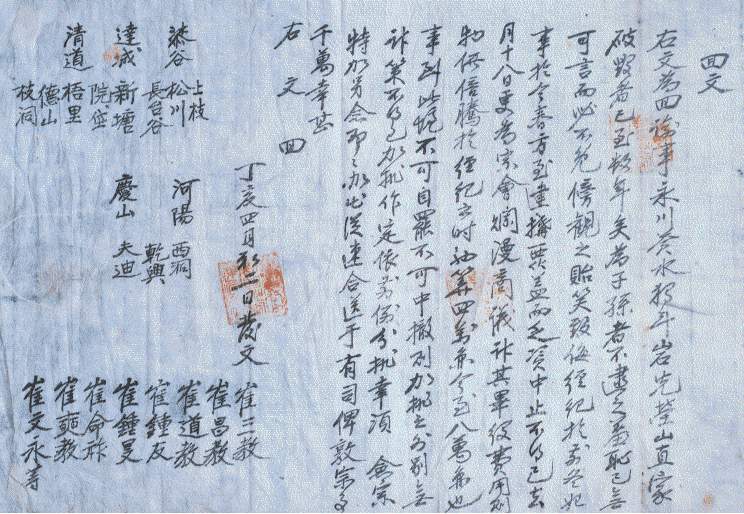 回文
右文爲回諭事永川苓水枓斗岩先塋山直家
破毀者已至數年矣爲子孫者不盡之羞恥已無
可言而必不免傍觀之貽笑致侮經紀於
事於今春方至建搆 盖而乏資中止不得已去
月十八日更爲宗會爛漫商議計其畢役費用則
物價倍騰於經紀之時 算四 今至八萬 也
事到此境不可自罷不可中撤則加排之外別無
計策不得已加排作定依 分排幸須 僉宗
特加另念 從速合送于有司俾敦宗
千萬幸甚
右文回
丁亥四月初二日發文
漆谷 上枝 松川 長台谷
達成 新塘 院垈
淸道 梧里 德山 枝洞
河陽 西洞 乾興
慶山 夫迪
崔三敎
崔昌敎
崔道敎
崔鍾友
崔鍾旻
崔命祚
崔 敎
崔文永 等